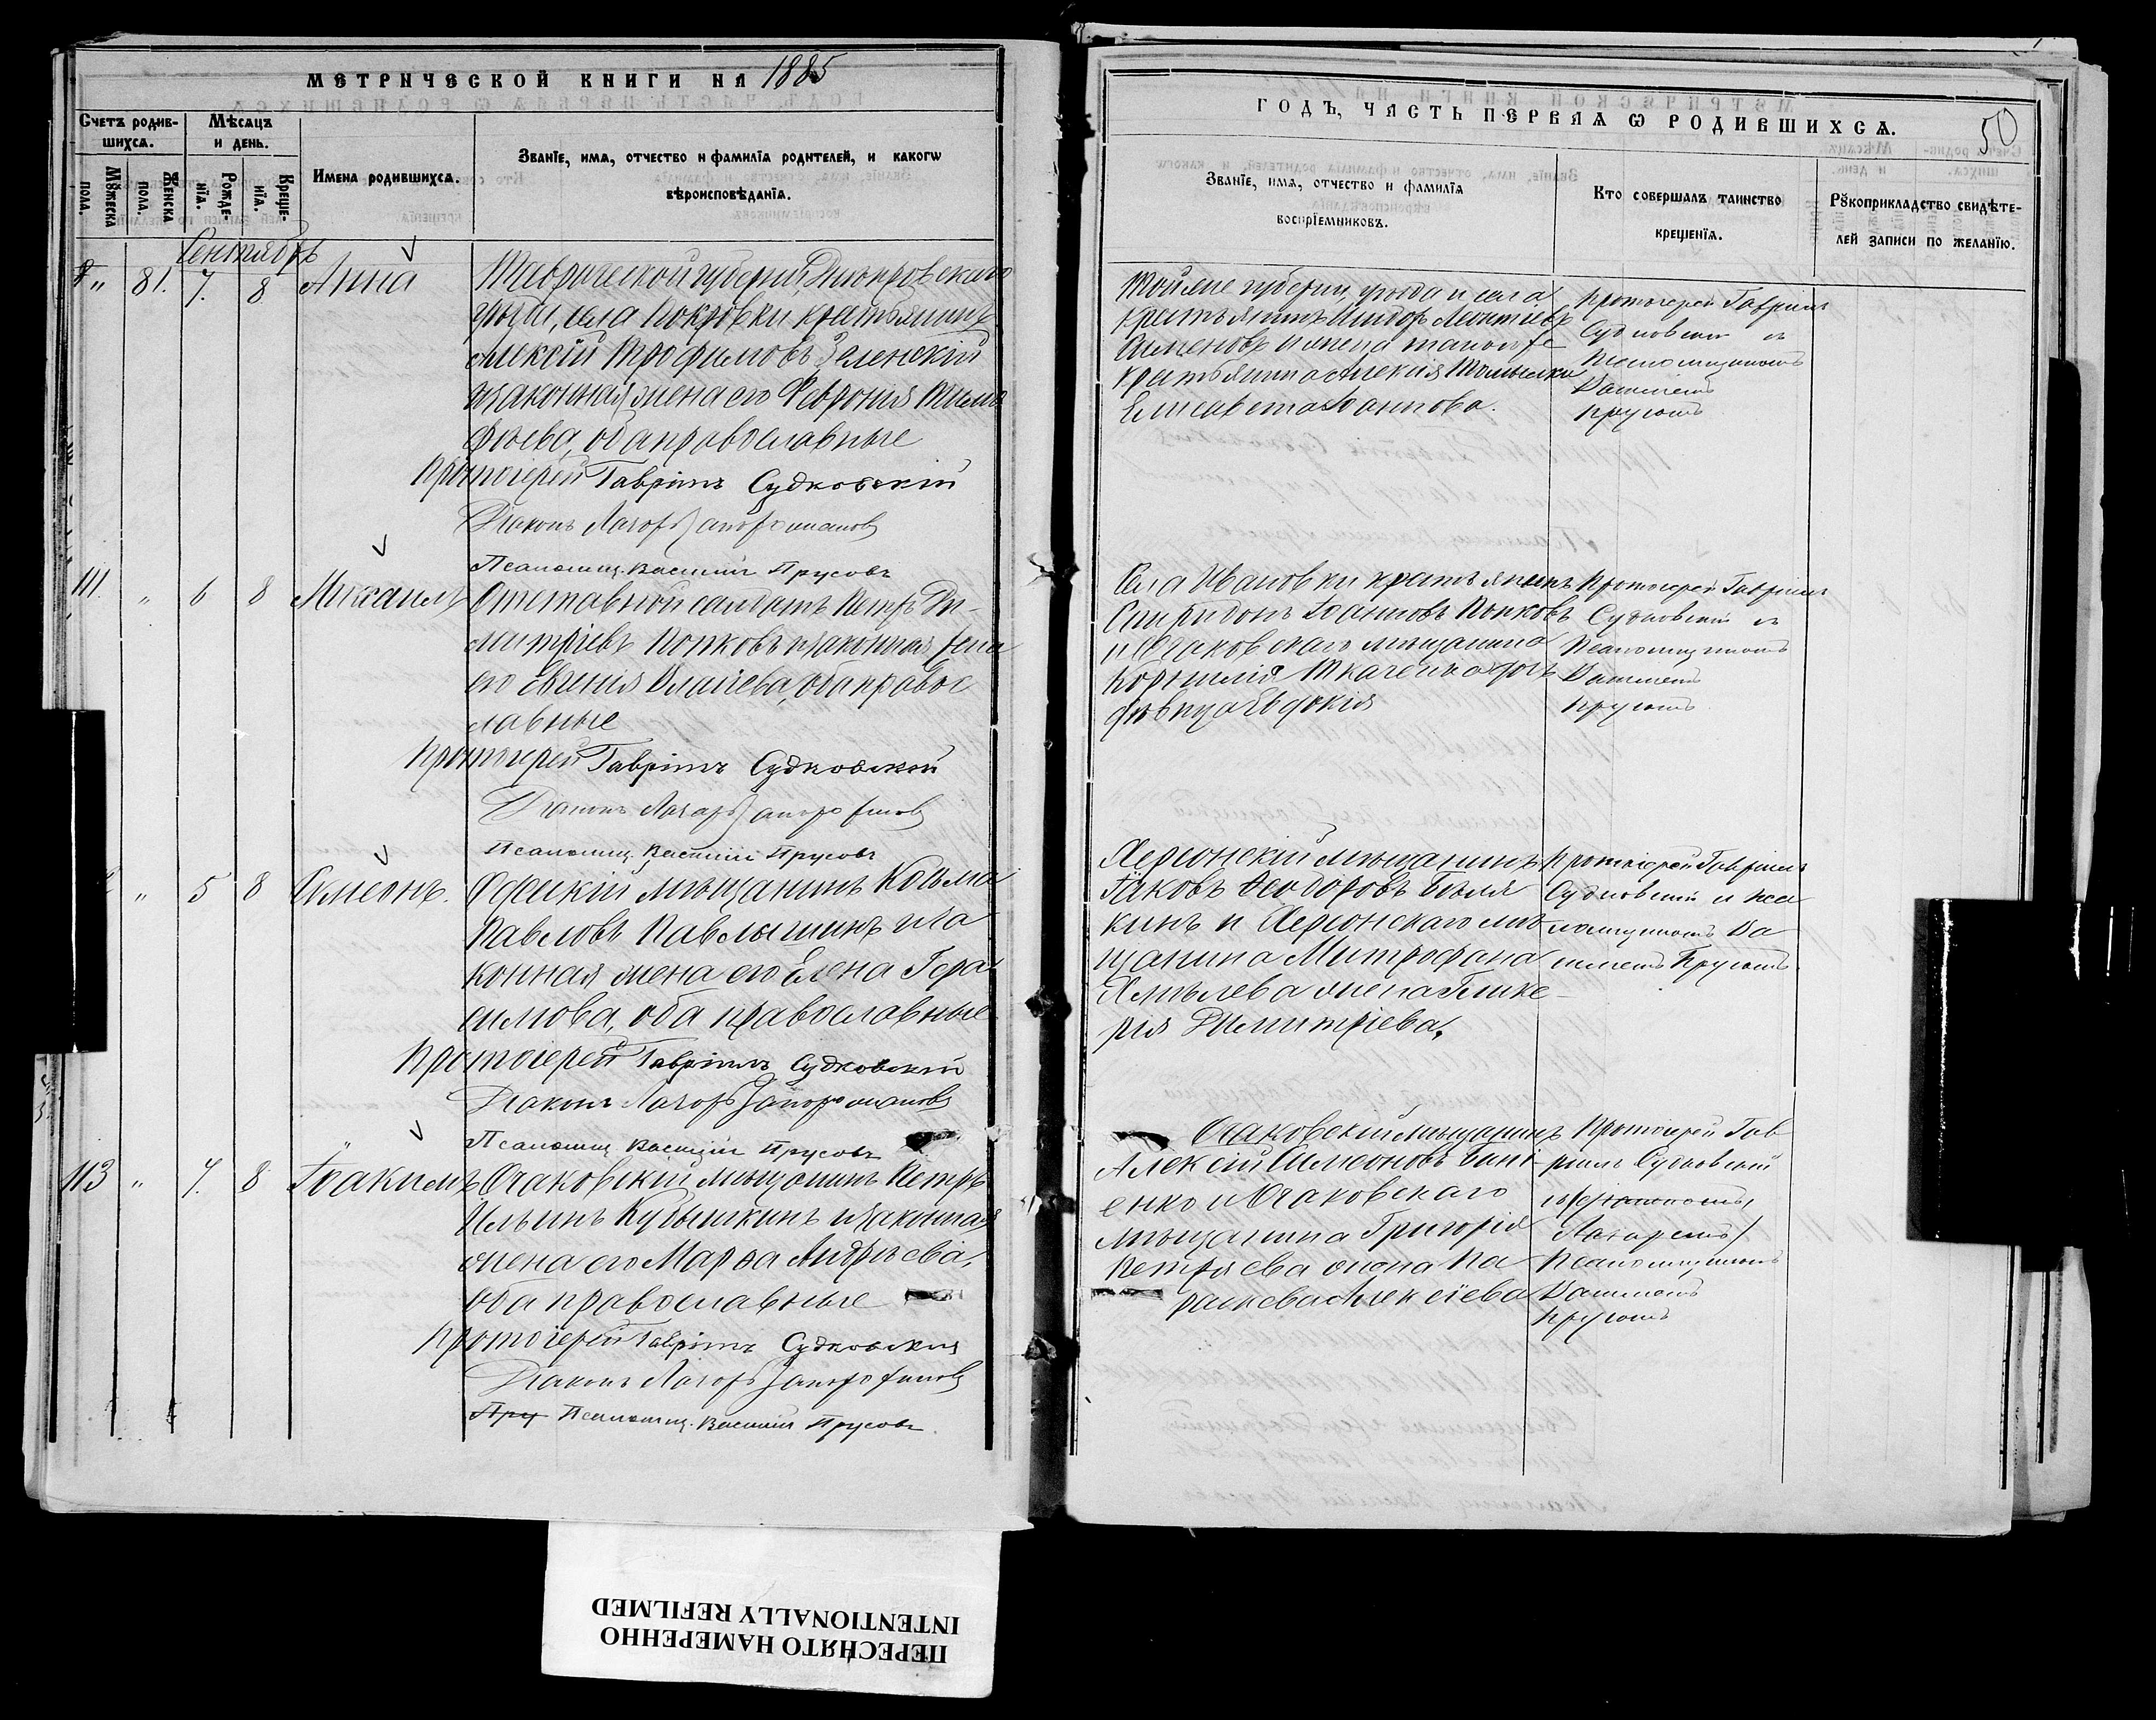 МЕТРИЧЕСКОЙ КНИГИ НА 1885
Счетъ родив-
шихся.
Мѣсяцъ
и день.
Мȣжеска
пола.
Женска
пола.
Рожде-
нїя.
Креще-
нїя.
Имена родившихся.
Званїе, имя, отчество и фамилїя родителей, и какогѡ
вѣроисповѣданїя.
Сентябрь
" 81. 7. 8 Анна
Таврической губерніи, Днѣпровскаго
уѣзда, села Покровки крестьянинъ
Алексій Трофимовъ Зеленскій
и законная жена его Феврония Тимо
фѣева, оба православные
Протоіерей Гавріилъ Судковскій
Діаконъ Лазарь Запорожановъ
Псаломщ. Василій Прусовъ
111. " 6 8 Михаилъ
Отставной солдатъ Петръ Ди-
митріевъ Попковъ и законная жена
его Евгения Власіева, оба правос
лавные
Протоіерей Гавріилъ Судковскій
Діаконъ Лазарь
Псаломщ. Василій Прусовъ
" 5 8 Симеонъ.
Одесскій мѣщанинъ Козьма
Павловъ Павлышинъ и за
конная жена его Елена Гера
симова, оба православные
Протоіерей Гавріилъ Судковскій
Діаконъ Лазарь Запорожановъ
Псаломщ. Василій Прусовъ
113 " 7. 8 Іоакимъ
Очаковскій мѣщанинъ Петръ
Ильинъ Кубышкинъ и законная
жена его Марѳа Андреева,
оба православные
Протоіерей Гавріилъ Судковскій
Діаконъ Лазарь
Пру Псаломщ. Василій Прусовъ
ГОДЪ, ЧАСТЬ ПЕРВАЯ Ѡ РОДИВШИХСЯ.
50
Званїе, имя, отчество и фамилїя
воспрїемниковъ.
Кто совершалъ таинство
крещенїя.
Рȣкоприкладство свидѣте-
лей записи по желанїю.
Той же губерніи, уѣзда и села
крестьянинъ Леонтіевъ
крестьянина Алексія
Елисавета Іоаннова.
Протоіерей Гавріилъ
Судковскій съ
Псаломщикомъ
Василіемъ
Прусовымъ
Села Ивановки крестьянинъ
Спиридонъ Іоанновъ Попковъ
и Очаковскаго мѣщанина
Корнилія Ткаченка дочь
дѣвица Евдокія
Протоіерей Гавріилъ
Судковскій съ
Псаломщикомъ
Василіемъ
Прусовымъ
Херсонскій мѣщанинъ
Іаковъ Ѳеодоровъ Беля
кинъ и Херсонскаго мѣ
щанина Митрофана
Хмѣлева жена Глике-
рия Димитріева.
Протоіерей Гавріилъ
Судковскій и пса
ломщикомъ Ва
силіемъ Прусовымъ
Очаковскій мѣщанинъ
Алексій Симеоновъ
енко и Очаковскаго
мѣщанина Григорія
Петряева жена Па
раскева Алексіева
Протоіерей Гав
ріилъ Судковскій
Лазаремъ
Псаломщикомъ
Василіемъ
Прусовымъ
ПЕРЕСНЯТО НАМЕРЕННО
INTENTIONALLY REFILMED